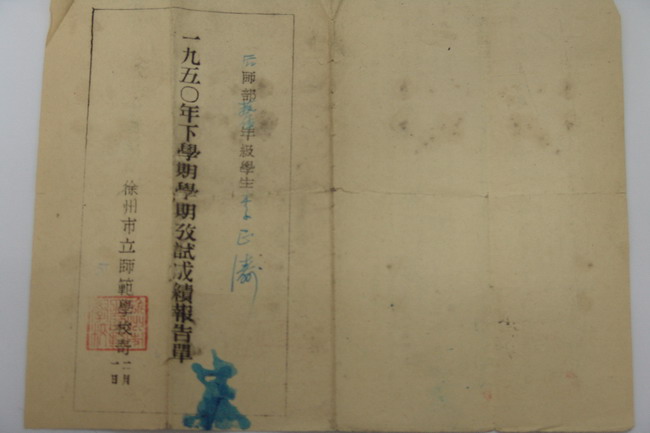 師部年級學生李正濤
一九五〇年下學期學期攷試成績報告單
徐州市立師範學校寄
二月
一日